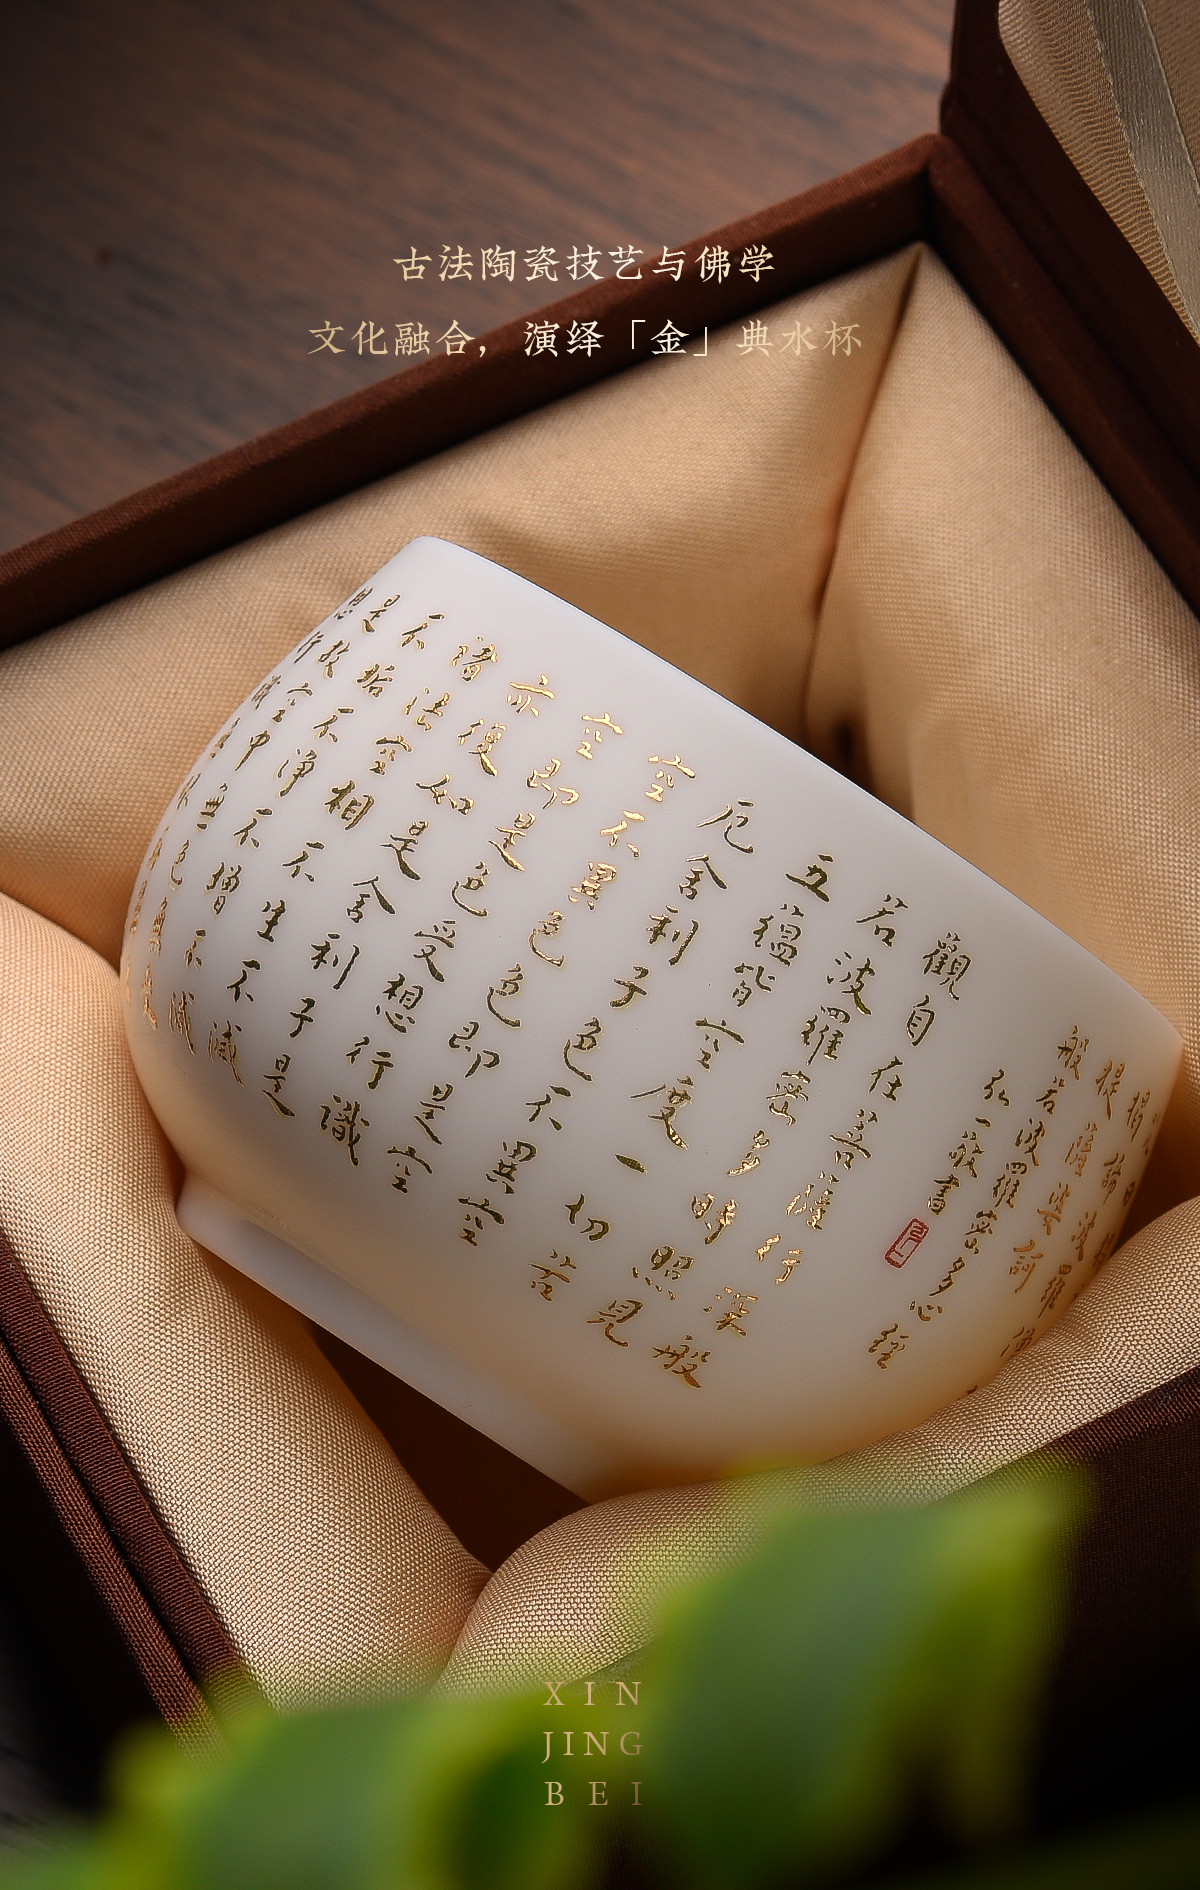 古法陶瓷技艺与佛学
文化融合，演绎「金」典水杯
提薩婆訶
般若波羅蜜多心經
弘一敬書
觀自在菩薩行深般
若波羅蜜多時照見
五蘊皆空度一切苦
厄舍利子色不異空
空不異色色即是空
空即是色受想行識
亦復如是舍利子是
諸法空相不生不滅
不垢不淨不增不減
是故空中無色無受
想行識
XIN
JING
BEI